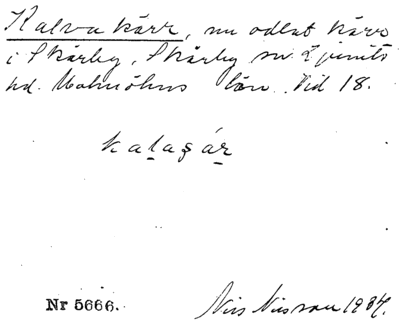 Kalva kärr, nu odlat kärr
i Skårby, Skårby sn. Ljunits
hd. Malmöhus län. Vid 18.
kalaʂár
Nr 5666.
Nils Nilsson 1934.